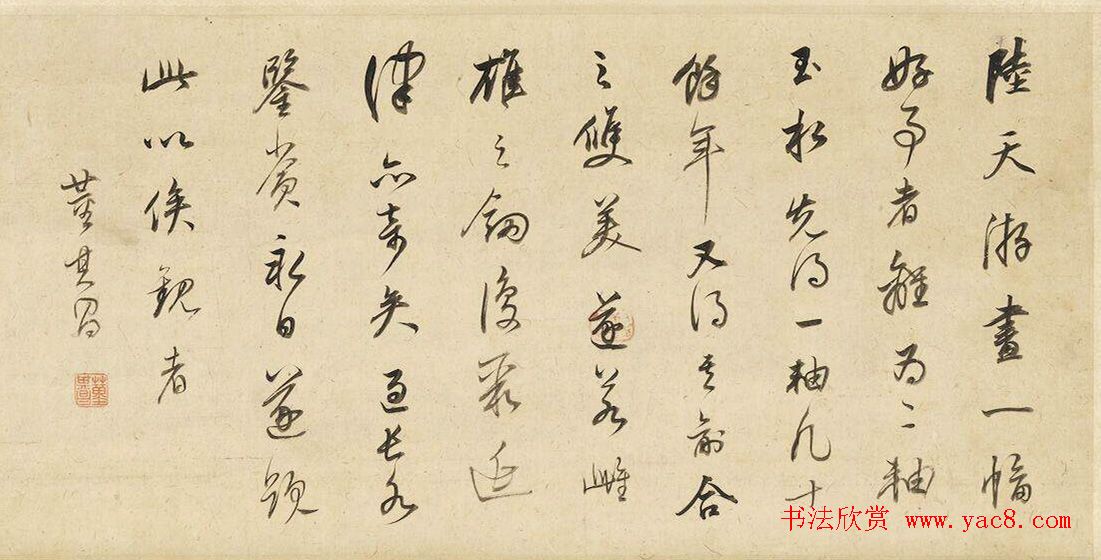 陸天游畫一幅
好事者離爲二軸
玉水先得一軸凡十
餘年又得其前合
之雙美遂若雌
雄之劒復聚延
津亦奇矣過長水
鑒賞永日遂題
此以俟観者
董其昌
董其昌
书法欣赏 www.yac8.com